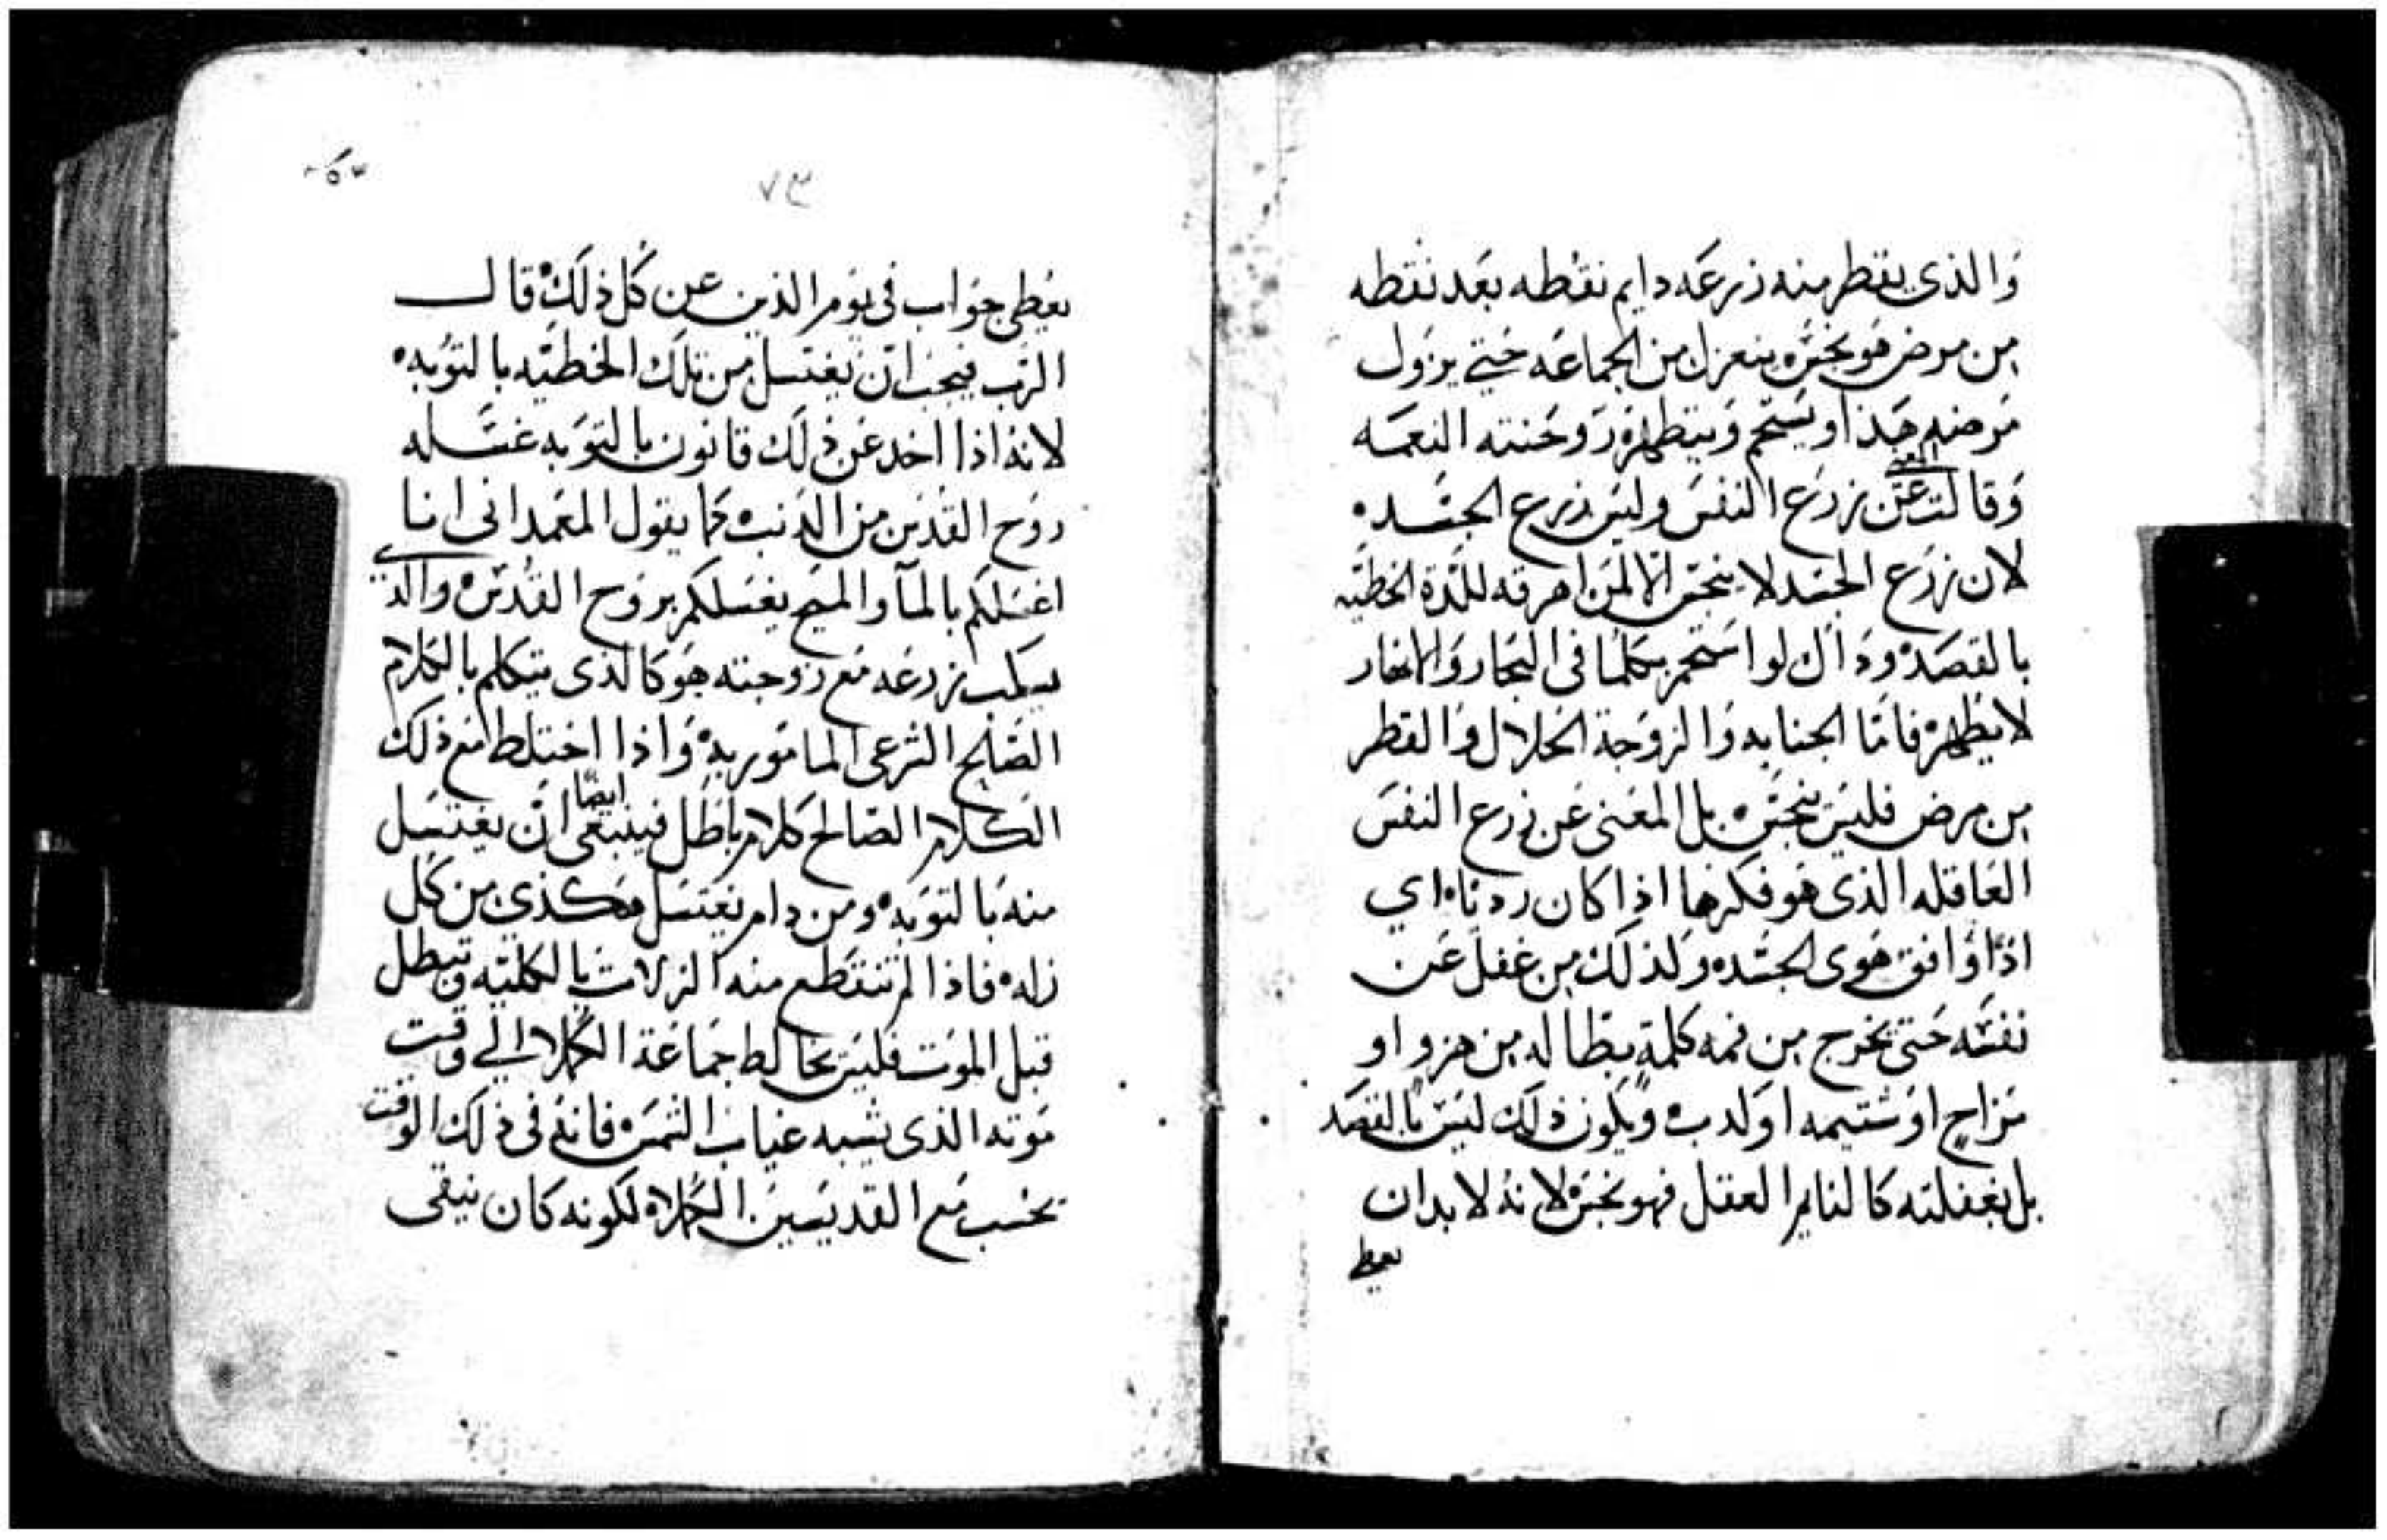 والذى يقطر منه زرعه دايم نقطه بعد نقطه
من مرض هو نجس ينعزل من الجماعه حتي يزول
مرضه هذا ويستحم ويتطهر روحنته النعمه
وقالت عن زرع النفس وليس زرع الجسد
لان زرع الجسد لا ينجس الا لمن اهرقه للذة الخطيه
بالقصد وذاك لو استحم بكلما فى البحار والانهار
لا يطهر فاما الجنابه والزوجة الحلال والقطر
من مرض فليس ينجس بل المعنى عن زرع النفس
العاقله الذى هو فكرها اذا كان رديا اي
اذا وافق هوى الجسد ولذلك من غفل عن
نفسه حتى تخرج من فمه كلمة بطاله من هزو او
مزاح او شتيمه او كدب ويكون ذلك ليس بالقصد
بل بغفلته كالنايم العقل فهو نجس لانه لابد ان
يعطى
٧٣
يعطى جواب فى يوم الدين عن كل ذلك قال
الرب فيجب ان يغتسل من تلك الخطيه بالتوبه
لانه اذا اخد عن ذلك قانون بالتوبه غسله
روح القدس من الدنب كما يقول المعمدانى انا
اغسلكم بالمآ والمسيح يغسلكم بروح القدس والذي
يسكب زرعه مع زوجته هو كالدى يتكلم بالكلام
الصالح الشرعى المامور به واذا اختلط مع ذلك
الكلام الصالح كلام باطل فينبغى ايضا ان يغتسل
منه بالتوبه ومن دام يغتسل هكذي من كل
زله فاذا لم تنقطع منه الزلات بالكليه وتبطل
قبل الموت فليس يخالط جماعة الكملا الي وقت
موته الذى يشبه غياب الشمس فانه فى ذلك الوقت
يحسب مع القديسين الكملا لكونه كان ينقى